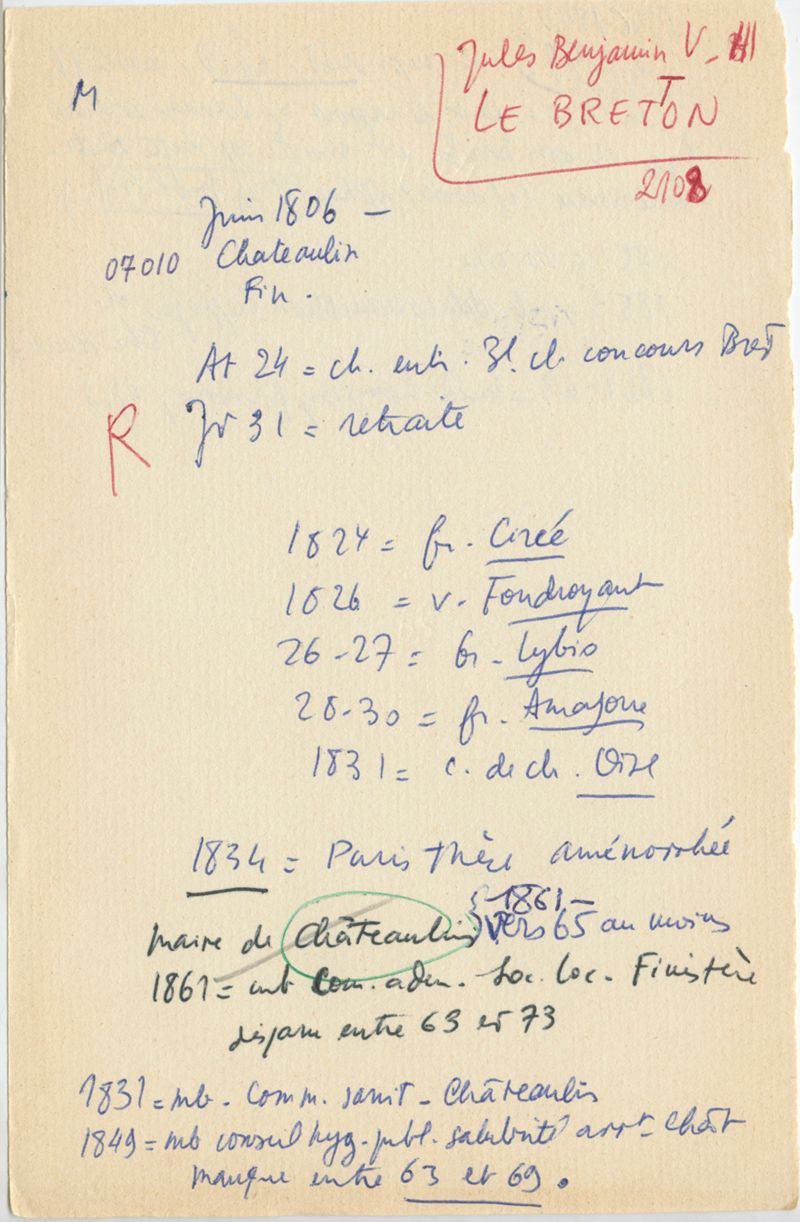 M
Jules Benjamin V-
LE BRETTON
2108
Juin 1806 -
07010 Chateaulin
Fin.
At 24 = ch. entr. 3l. ch concours Brest
R Jt 31 = retraite
1824 = fr. Circé
1826 = v. Foudroyant
26-27 = br. Lybio
28-30 = fr. Amazone
1831 = c. de ch. Oise
1834 = Paris thèse aménorrhée
1861 -
maire de Châteaulin vers 65 au moins
1861 = mb Com. adm. Soc. loc. Finistère
dispau entre 63 et 73
1831 = mb. Comm. sanit. Châteaulin
1849 = mb conseil hyg. publ. salubrité arrt Chât
manque entre 63 et 69.